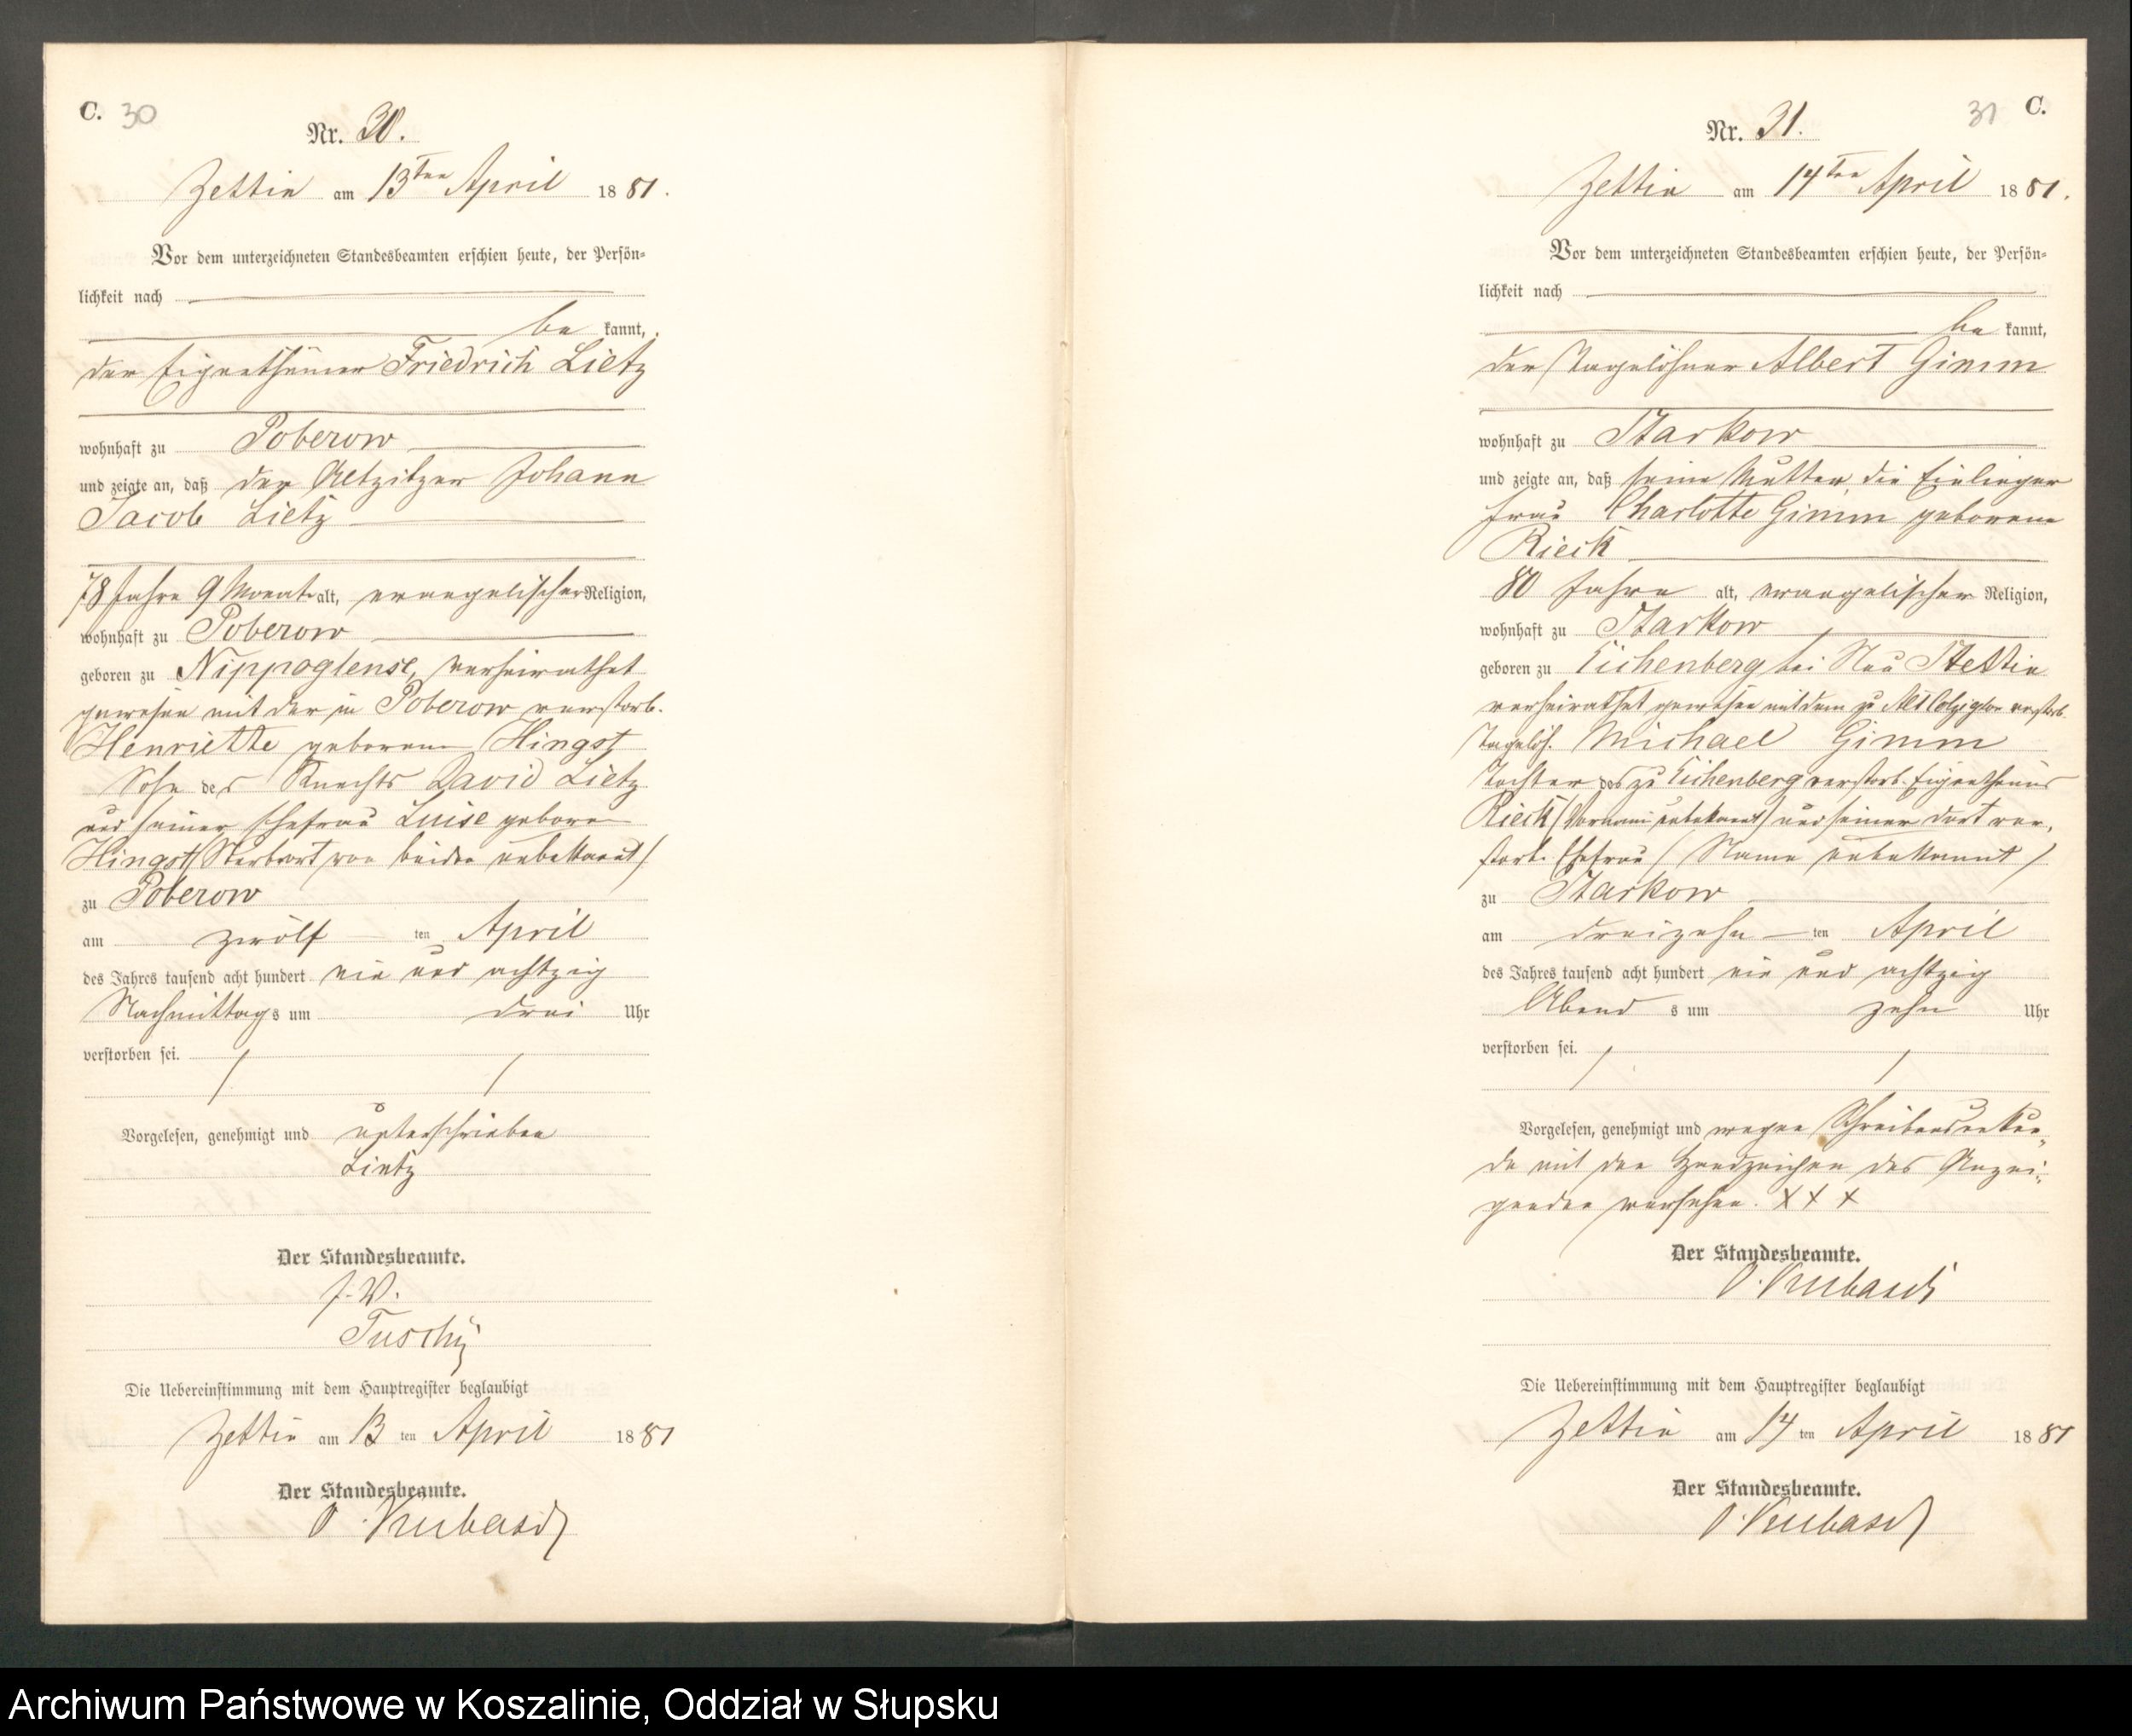 C. 30
Nr. 30.
Zettin am 13ten April 1881.
Vor dem unterzeichneten Standesbeamten erschien heute, der Persön-
lichkeit nach
be kannt,
der Eigenthümer Friedrich Lietz
wohnhaft zu Poberow
und zeigte an, daß der Altsitzer Johann
Jacob Lietz
78 Jahre 9 Monate alt, evangelischer Religion,
wohnhaft zu Poberow
geboren zu Nippoglense, verheirathet
gewesen mit der in Poberow verstorb.
Henriette geborene Hingst
Sohn des Knechts David Lietz
und seiner Ehefrau Luise geborne
Hingst / Sterbeort von beiden unbekannt /
zu Poberow
am zwölf ten April
des Jahres tausend acht hundert ein und achtzig
Nachmittags um drei Uhr
verstorben sei.
Vorgelesen, genehmigt und unterschrieben
Lietz
Der Standesbeamte.
J. V.
Die Uebereinstimmung mit dem Hauptregister beglaubigt
Zettin am 13 ten April 1881
Der Standesbeamte.
31 C.
Nr. 31.
Zettin am 14ten April 1881.
Vor dem unterzeichneten Standesbeamten erschien heute, der Persön-
lichkeit nach
be kannt,
der Tagelöhner Albert Gimm
wohnhaft zu Starkow
und zeigte an, daß seine Mutter, die Einlieger
frau Charlotte Gimm geborene
Rieck
80 Jahre alt, evangelischer Religion,
wohnhaft zu Starkow
geboren zu Eichenberg bei Neu Stettin
verheirathet gewesen mit dem zu Alt Colziglow verstorb.
Tagelöh. Michael Gimm
Tochter des zu Eichenberg verstorb. Eigenthümers
Rieck / Vorname unbekannt / und seiner dort ver-
storb. Ehefrau / Name unbekannt /
zu Starkow
am dreizehn ten April
des Jahres tausend acht hundert ein und achtzig
Abend s um zehn Uhr
verstorben sei.
Vorgelesen, genehmigt und wegen Schreibensunkun-
de mit den Handzeichen des Anzei-
genden versehen. XXX
Der Standesbeamte.
Die Uebereinstimmung mit dem Hauptregister beglaubigt
Zettin am 14 ten April 1881
Der Standesbeamte.
Archiwum Państwowe w Koszalinie, Oddział w Słupsku